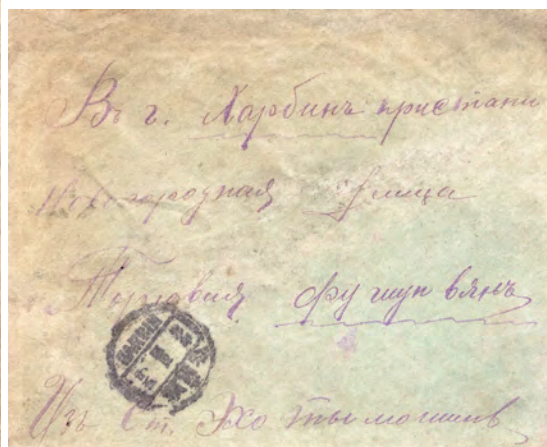 Въ г. Харбинъ пристани
Новогородная улица
Торговия фу шун вянъ
Изъ Ст. Эхо